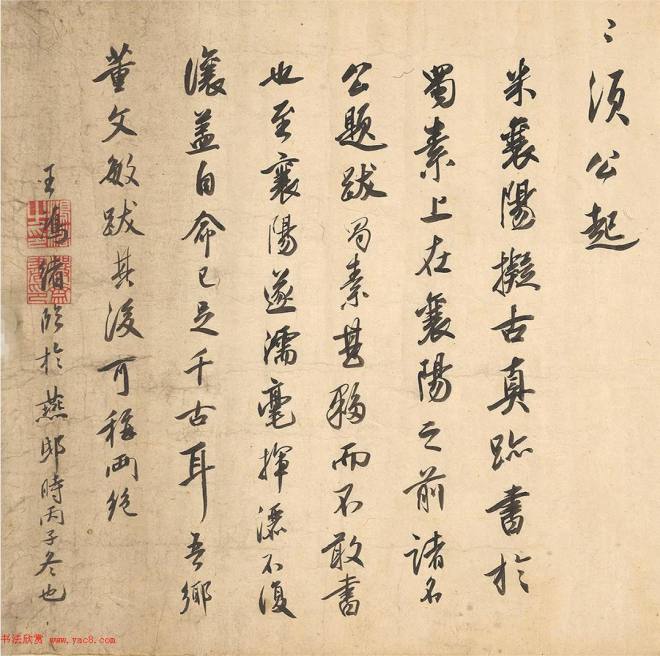 〻須公起
米襄陽擬古真跡書於
蜀素上在襄陽之前諸名
公題跋蜀素甚夥而不敢書
也至襄陽遂濡毫揮灑不復
讓蓋自命已足千古耳吾鄉
董文敏跋其後可稱兩絕
王鴻緒臨於燕邸時丙子冬也
书法欣赏 www.yac8.com